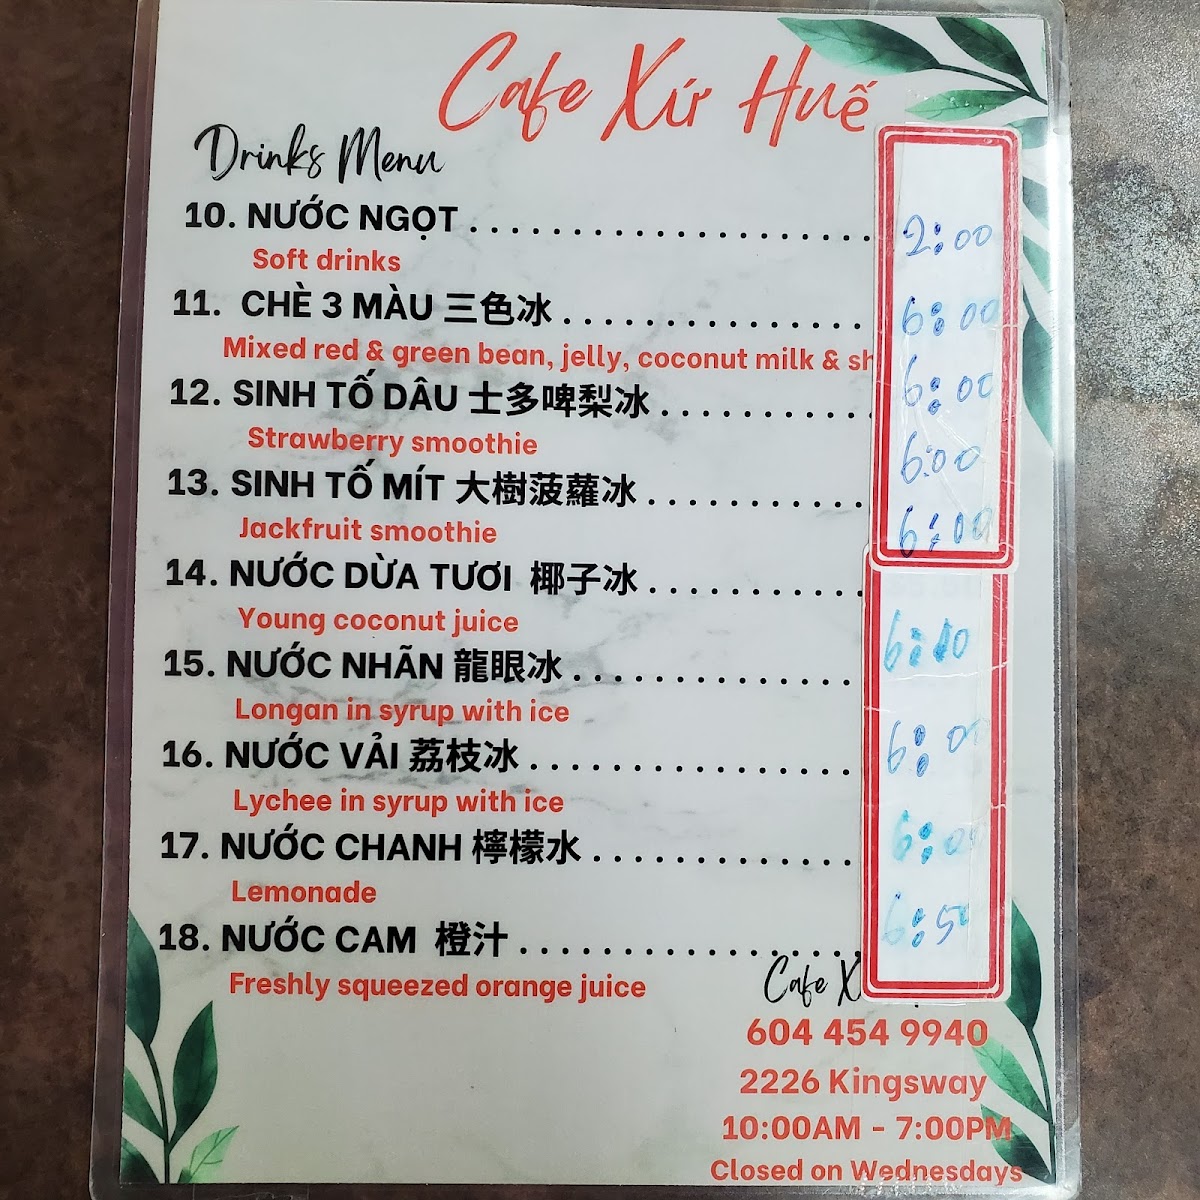 Cafe Xứ Huế
Drinks Menu
10. NƯỚC NGỌT . . . . . . . . . . . . . . . . . . . . . 2:00
Soft drinks
11. CHÈ 3 MÀU 三色冰 . . . . . . . . . . . . . . . . 6:00
Mixed red & green bean, jelly, coconut milk &
12. SINH TỐ DÂU 士多啤梨冰 . . . . . . . . . . . 6:00
Strawberry smoothie
13. SINH TỐ MÍT 大樹菠蘿冰 . . . . . . . . . . . 6:00
Jackfruit smoothie
14. NƯỚC DỪA TƯƠI 椰子冰 . . . . . . . . . . . 6:00
Young coconut juice
15. NƯỚC NHÃN 龍眼冰 . . . . . . . . . . . . . . .
Longan in syrup with ice
16. NƯỚC VẢI 荔枝冰 . . . . . . . . . . . . . . . . . 6:00
Lychee in syrup with ice
17. NƯỚC CHANH 檸檬水 . . . . . . . . . . . . . . 6:00
Lemonade
18. NƯỚC CAM 橙汁 . . . . . . . . . . . . . . . . . . 6:50
Freshly squeezed orange juice
Cafe
604 454 9940
2226 Kingsway
10:00AM - 7:00PM
Closed on Wednesdays